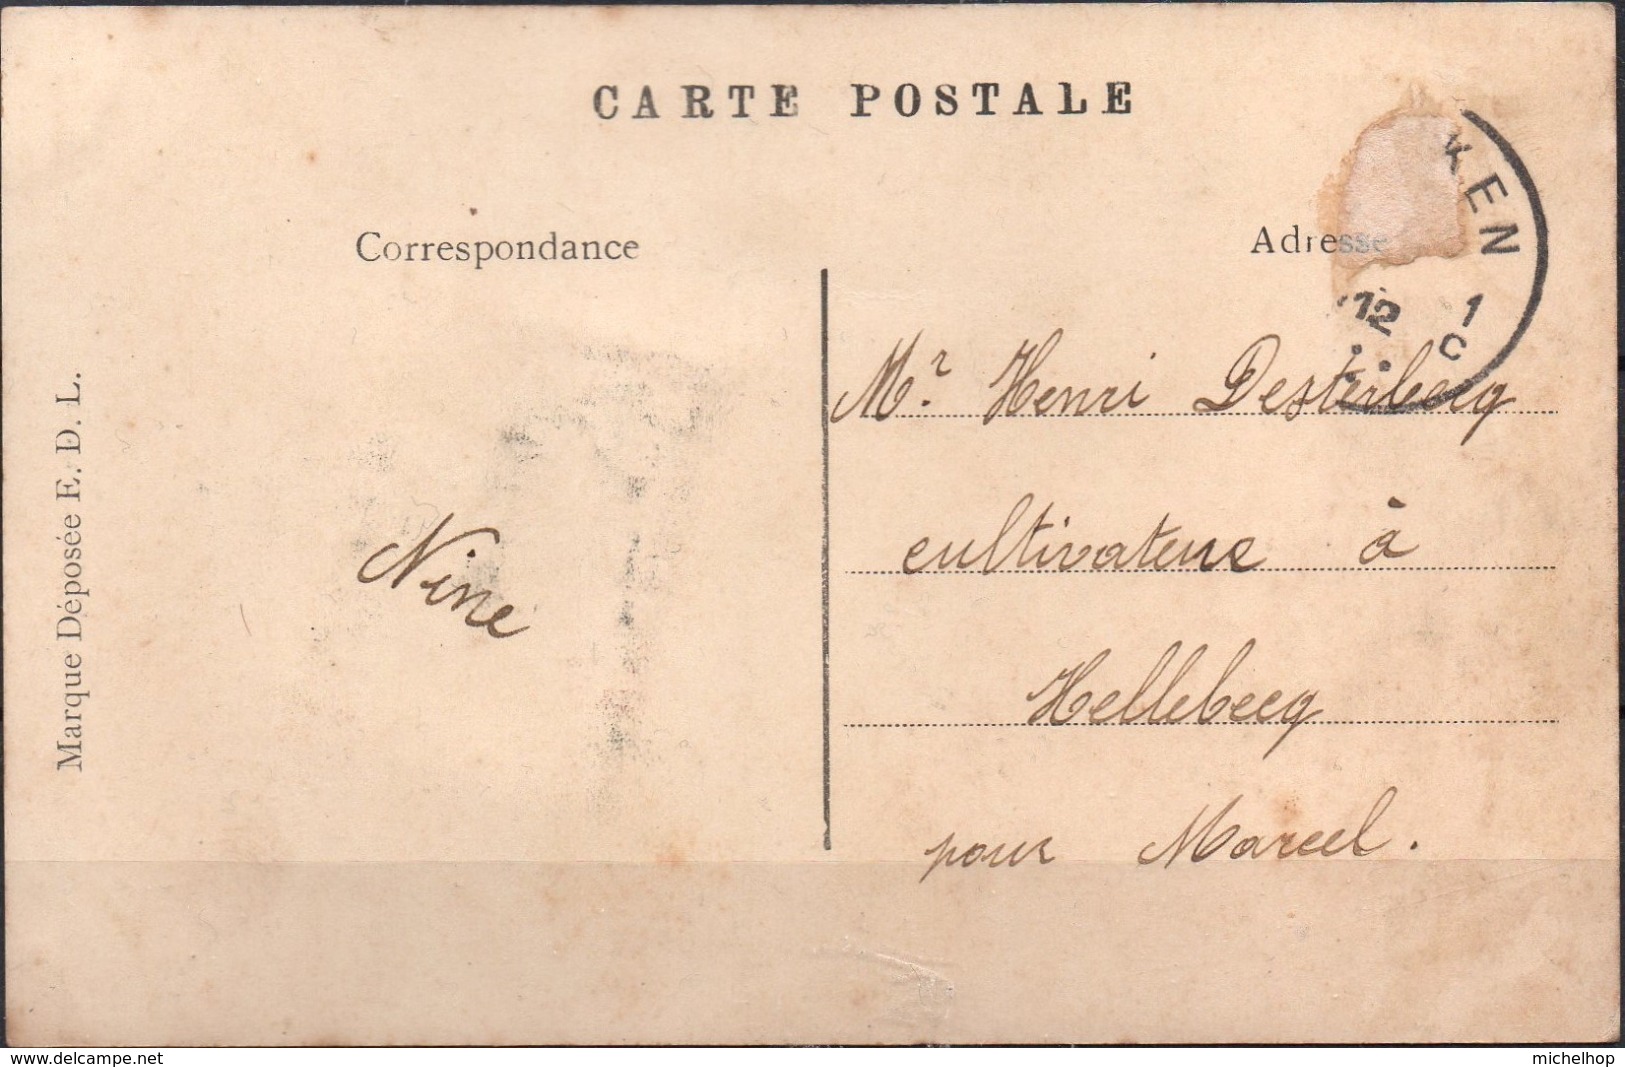 CARTE POSTALE
Correspondance
Adresse
KEN
12 1
C
Marque Déposée E. D. L.
Mr. Henri Desterbecq
cultivateur à
Hellebecq
pour Marcel.
Nine
www.delcampe.net
michelhop